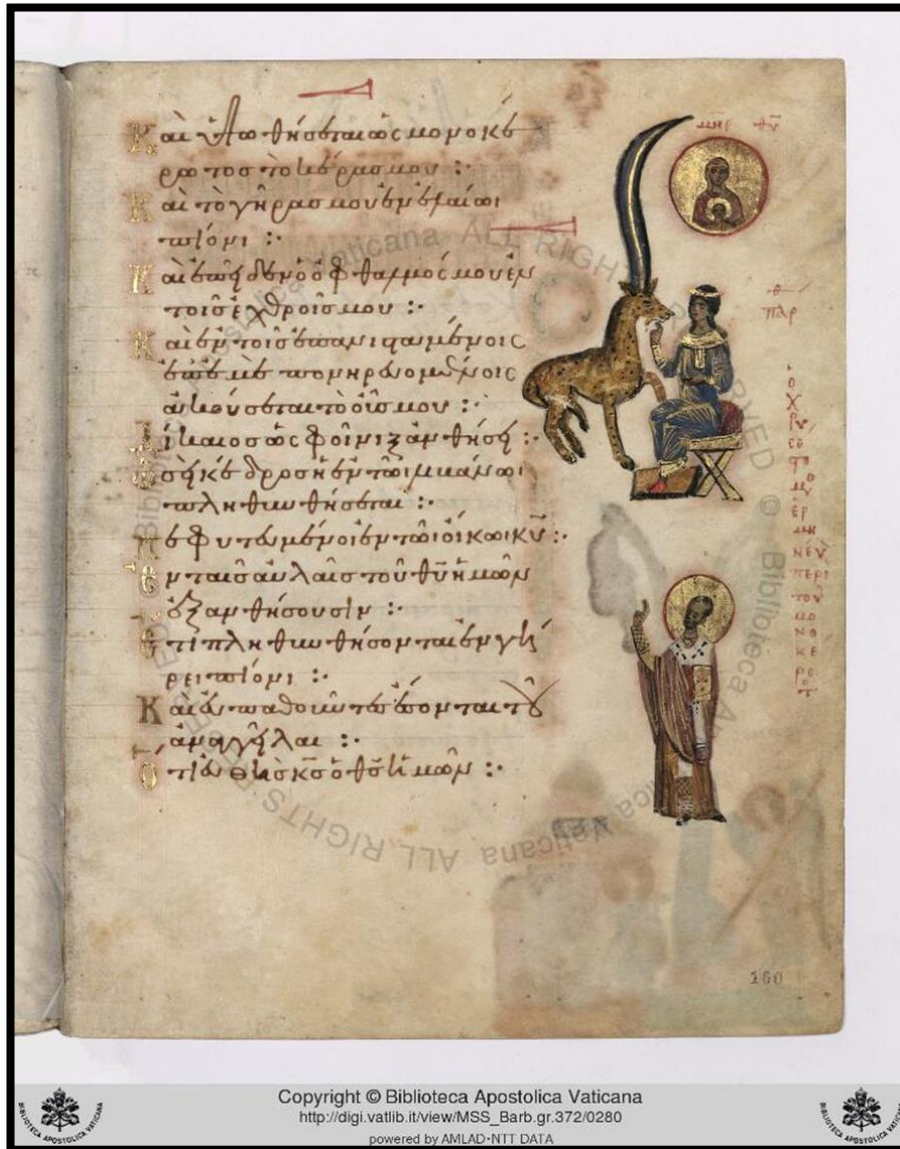 Καὶ ὑψωθήσεται ὡς μονοκέ
ρωτος τὸ κέρας μου :·
Καὶ τὸ γῆρας μου ἐν ἐλαίωι
πίονι :·
Καὶ ἐπεῖδεν ὁ ὀφθαλμός μου ἐν
τοῖς ἐχθροῖς μου :·
Καὶ ἐν τοῖς ἐπανισταμένοις
ἐπ ἐμὲ πονηρευομένοις
ἀκούσεται τὸ οὖς μου :·
Δίκαιος ὡς φοῖνιξ ἀνθήσει :·
ὡσεὶ κέδρος ἡ ἐν τῶι Λιβάνωι
πληθυνθήσεται :·
Πεφυτευμένοι ἐν τῶι οἴκω κ̅υ̅ :·
Ἐν ταῖς αὐλαῖς τοῦ θ̅υ̅ ἡμῶν
ἐξανθήσουσιν :·
Ἔτι πληθυνθήσονται ἐν γή
ρει πίονι :·
Καὶ εὐπαθοῦντες ἔσονται τοῦ
ἀναγγεῖλαι :·
Ὅτι εὐθὴς κ̅ς̅ ὁ θ̅ς̅ ἡμῶν :·
θ̅υ̅
παρ
ὁ
χ
ρυ
σό
στο
μ
ἑρ
μη
νεύ
περὶ
τοῦ
μο
νο
κέ
ρο
τ
160
Copyright © Biblioteca Apostolica Vaticana
http://digi.vatlib.it/view/MSS_Barb.gr.372/0280
powered by AMLAD-NTT DATA
BIBLIOTECA APOSTOLICA VATICANA
BIBLIOTECA APOSTOLICA VATICANA